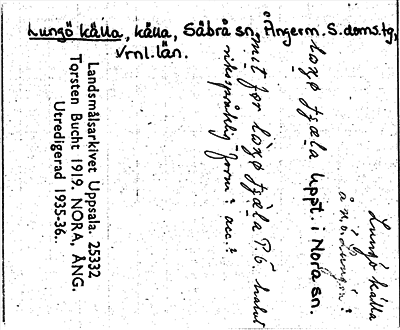 Lungö källa, källa, Säbrå sn, Ångerm. S. doms.tg,
Vrnl. län.
Lungö källa
å nö Lungön?
uppt. i Nora sn.
riksspråklig form i acc.?
Landsmålsarkivet Uppsala. 25332
Torsten Bucht 1919. NORA, ÅNG.
Utredigerad 1935-36.